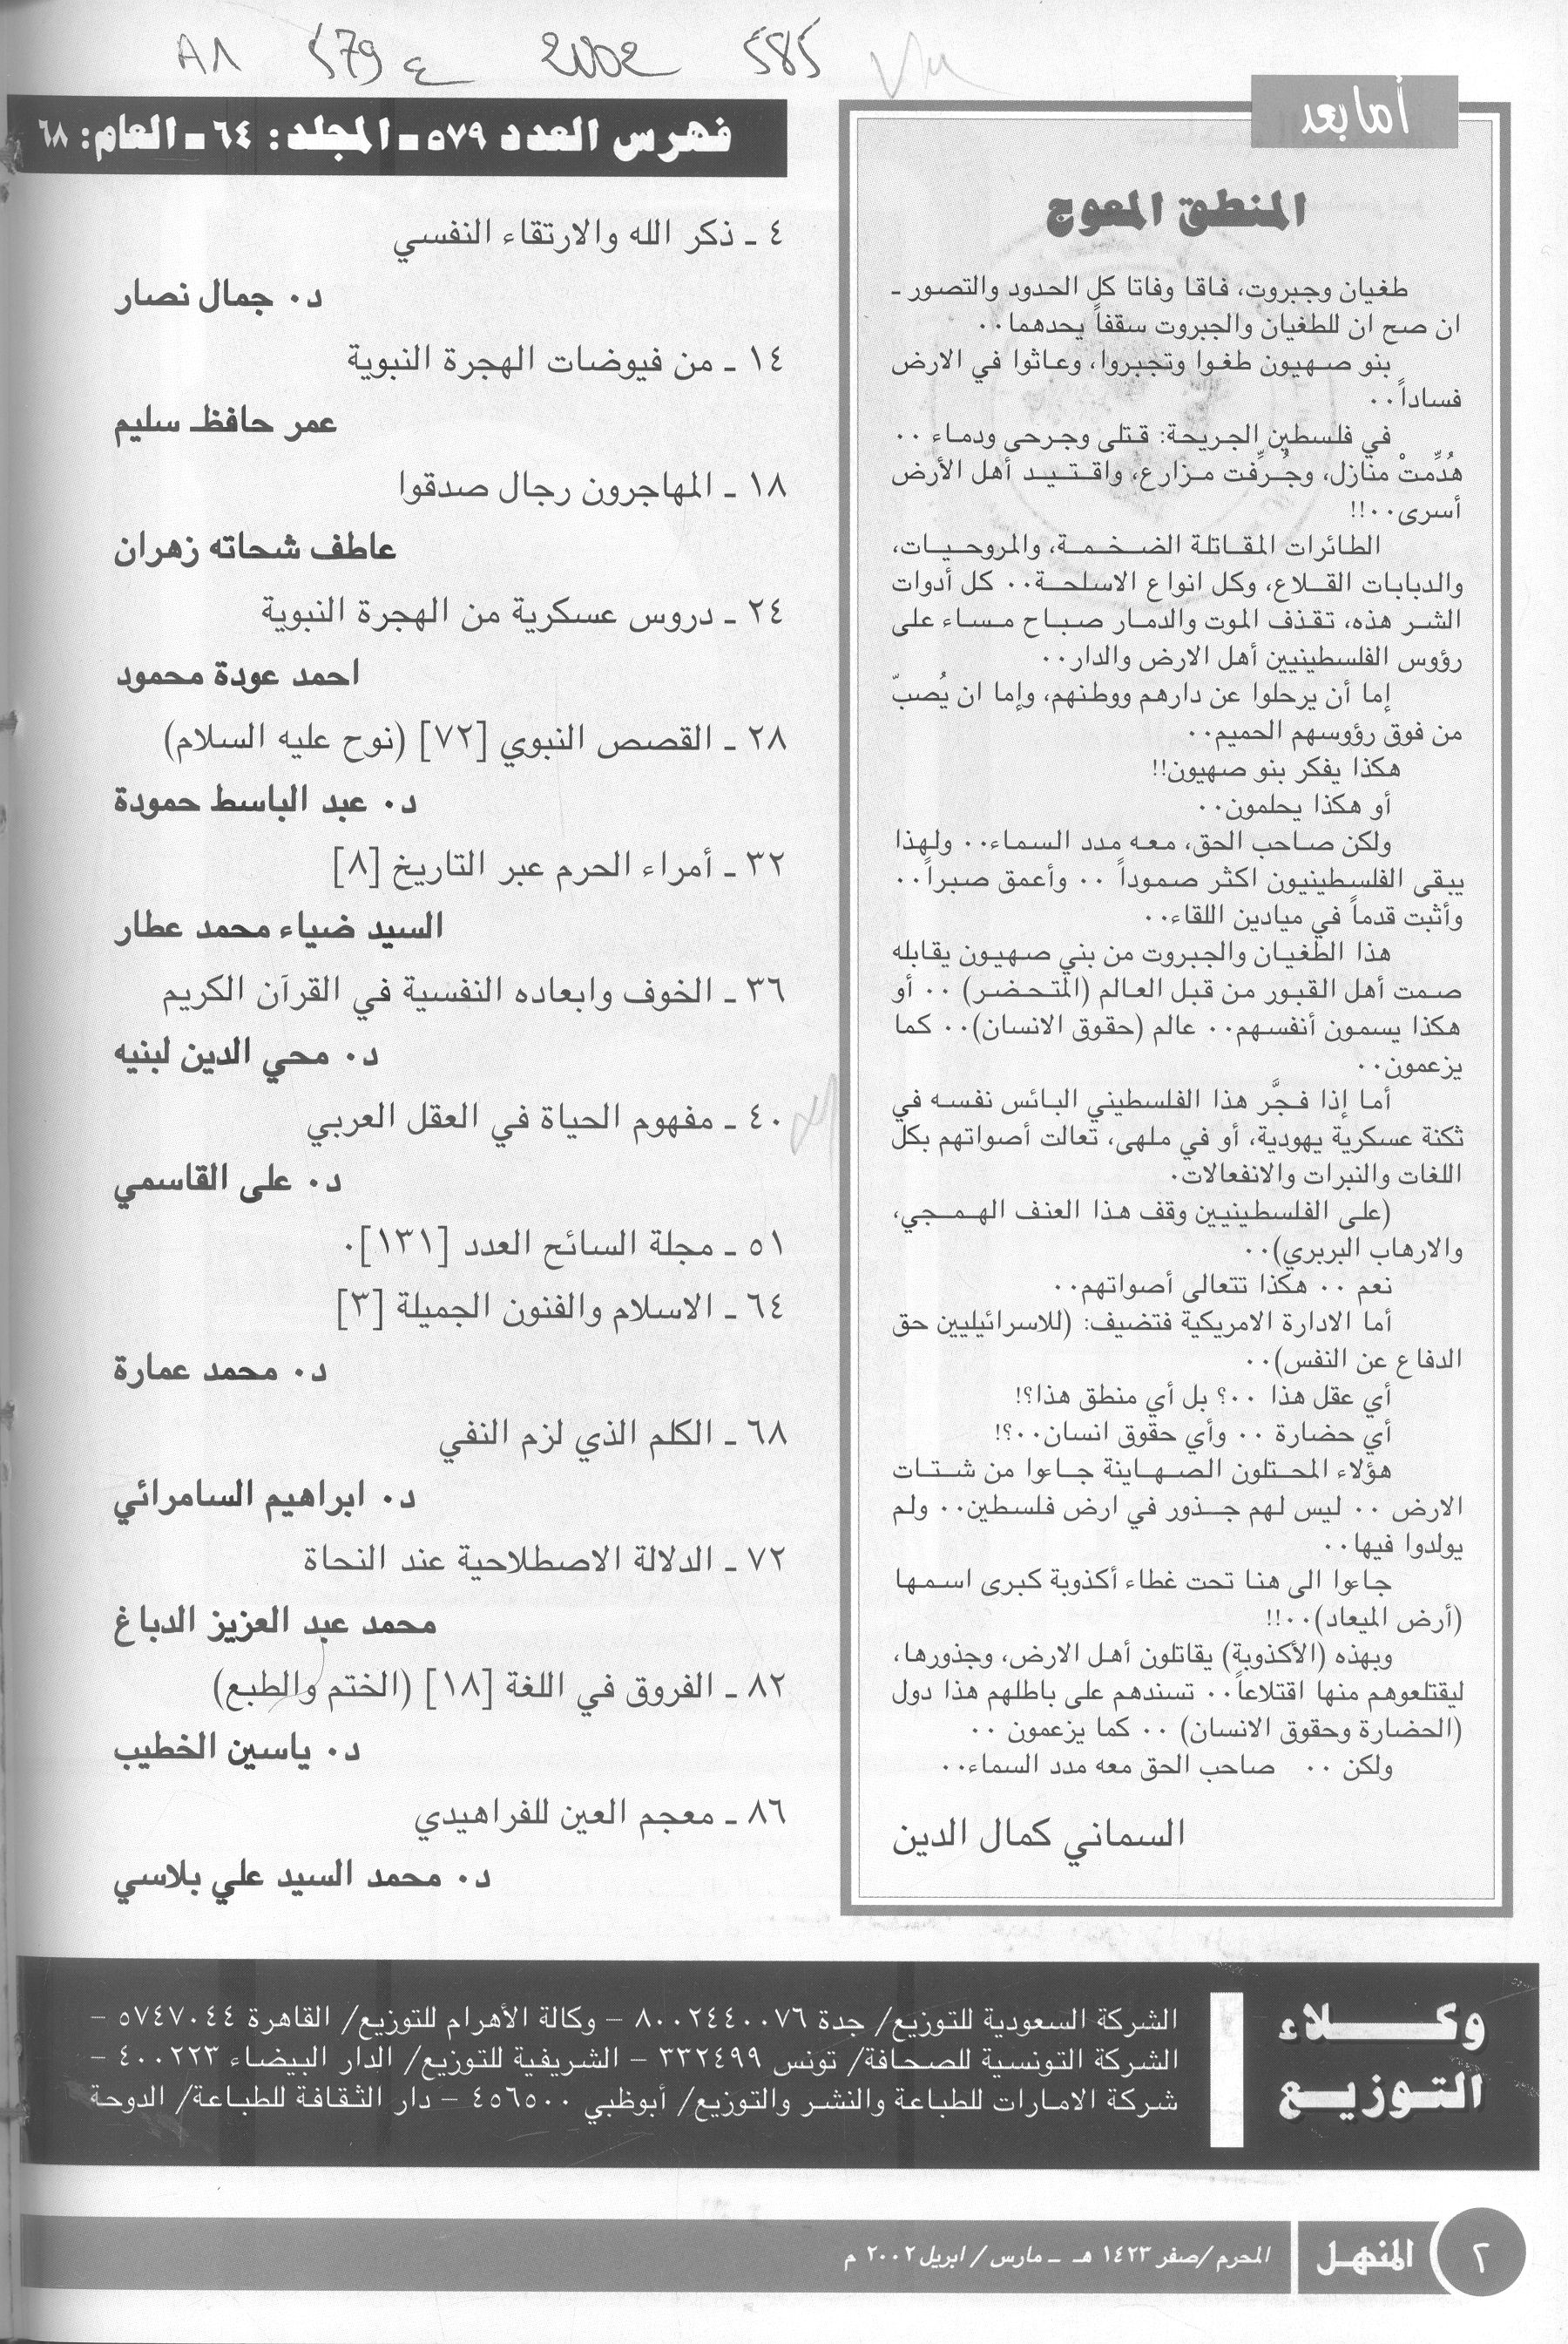 A1 579 ع 2002 585
أما بعد
المنطق المعوج
طغيان وجبروت، فاقا وفاتا كل الحدود والتصور ـ
ان صح ان للطغيان والجبروت سقفاً يحدهما..
بنو صهيون طغوا وتجبروا، وعاثوا في الارض
فساداً..
في فلسطين الجريحة: قتلى وجرحى ودماء ..
هُدِّمتْ منازل، وجُرِّفت مزارع، واقتيد أهل الأرض
أسرى..!!
الطائرات المقاتلة الضخمة، والمروحيات،
والدبابات القلاع، وكل انواع الاسلحة.. كل أدوات
الشر هذه، تقذف الموت والدمار صباح مساء على
رؤوس الفلسطينيين أهل الارض والدار..
إما أن يرحلوا عن دارهم ووطنهم، وإما ان يُصبّ
من فوق رؤوسهم الحميم..
هكذا يفكر بنو صهيون!!
أو هكذا يحلمون..
ولكن صاحب الحق، معه مدد السماء.. ولهذا
يبقى الفلسطينيون اكثر صموداً .. وأعمق صبراً..
وأثبت قدماً في ميادين اللقاء..
هذا الطغيان والجبروت من بني صهيون يقابله
صمت أهل القبور من قبل العالم (المتحضر) .. أو
هكذا يسمون أنفسهم.. عالم (حقوق الانسان).. كما
يزعمون..
أما إذا فجَّر هذا الفلسطيني البائس نفسه في
ثكنة عسكرية يهودية، أو في ملهى، تعالت أصواتهم بكل
اللغات والنبرات والانفعالات.
(على الفلسطينيين وقف هذا العنف الهمجي،
والارهاب البربري)..
نعم .. هكذا تتعالى أصواتهم..
أما الادارة الامريكية فتضيف: (للاسرائيليين حق
الدفاع عن النفس)..
أي عقل هذا ..؟ بل أي منطق هذا؟!
أي حضارة .. وأي حقوق انسان..؟!
هؤلاء المحتلون الصهاينة جاءوا من شتات
الارض .. ليس لهم جذور في ارض فلسطين.. ولم
يولدوا فيها..
جاءوا الى هنا تحت غطاء أكذوبة كبرى اسمها
(أرض الميعاد)..!!
وبهذه (الأكذوبة) يقاتلون أهل الارض، وجذورها،
ليقتلعوهم منها اقتلاعاً.. تسندهم على باطلهم هذا دول
(الحضارة وحقوق الانسان) .. كما يزعمون ..
ولكن .. صاحب الحق معه مدد السماء..
السماني كمال الدين
فهرس العدد ٥٧٩ ـ المجلد: ٦٤ ـ العام: ٦٨
٤ ـ ذكر الله والارتقاء النفسي
د. جمال نصار
١٤ ـ من فيوضات الهجرة النبوية
عمر حافظ سليم
١٨ ـ المهاجرون رجال صدقوا
عاطف شحاته زهران
٢٤ ـ دروس عسكرية من الهجرة النبوية
احمد عودة محمود
٢٨ ـ القصص النبوي [٧٢] (نوح عليه السلام)
د. عبد الباسط حمودة
٣٢ ـ أمراء الحرم عبر التاريخ [٨]
السيد ضياء محمد عطار
٣٦ ـ الخوف وابعاده النفسية في القرآن الكريم
د. محي الدين لبنيه
٤٠ ـ مفهوم الحياة في العقل العربي
د. على القاسمي
٥١ ـ مجلة السائح العدد [١٣١].
٦٤ ـ الاسلام والفنون الجميلة [٣]
د. محمد عمارة
٦٨ ـ الكلم الذي لزم النفي
د. ابراهيم السامرائي
٧٢ ـ الدلالة الاصطلاحية عند النحاة
محمد عبد العزيز الدباغ
٨٢ ـ الفروق في اللغة [١٨] (الختم والطبع)
د. ياسين الخطيب
٨٦ ـ معجم العين للفراهيدي
د. محمد السيد علي بلاسي
وكلاء
التوزيع
الشركة السعودية للتوزيع/ جدة ٨٠٠٢٤٤٠٠٧٦ – وكالة الأهرام للتوزيع/ القاهرة ٥٧٤٧٠٤٤ –
الشركة التونسية للصحافة/ تونس ٣٣٢٤٩٩ – الشريفية للتوزيع/ الدار البيضاء ٤٠٠٢٢٣ –
شركة الامارات للطباعة والنشر والتوزيع/ أبوظبي ٤٥٦٥٠٠ – دار الثقافة للطباعة/ الدوحة
٢ المنهل المحرم/صفر ١٤٢٣ هـ ـ مارس/ ابريل ٢٠٠٢ م